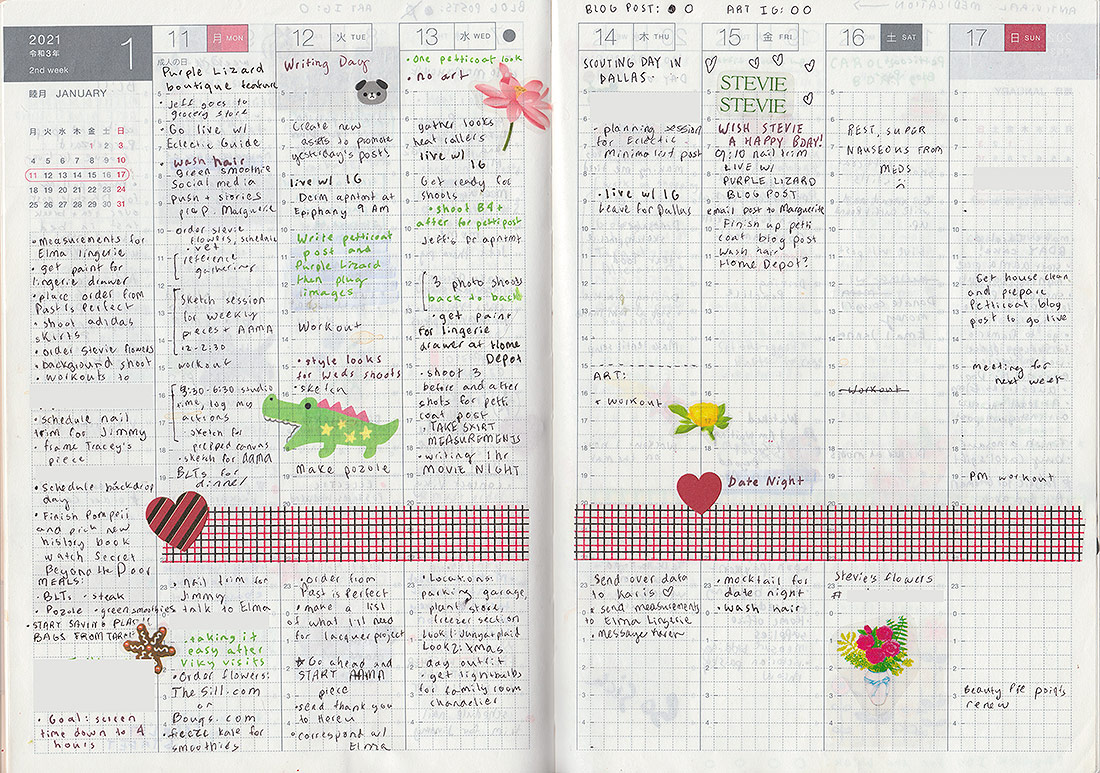 2021
令和3年
2nd week
1
睦月 JANUARY
月 火 水 木 金 土 日
1 2 3
4 5 6 7 8 9 10
11 12 13 14 15 16 17
18 19 20 21 22 23 24
25 26 27 28 29 30 31
• measurements for
Elma lingerie
• get paint for
lingerie drawer
• place order from
Past is Perfect
• shoot adidas
skirts
• order Stevie flowers
• background shoot
• workouts to
• schedule nail
trim for Jimmy
• frame Tracey's
piece
• Schedule backdrop
day
• Finish Pompeii
and pick new
history book
watch Secret
Beyond the Door
MEALS:
• BLTs • steak
• Pozole • green smoothies
• START SAVING PLASTIC
BAGS FROM TARGET
• Goal: screen
time down to 4
hours
11 月 MON
成人の日
Purple Lizard
boutique feature
• Jeff goes to
grocery store
• Go live w/
Eclectic Guide
• wash hair
green smoothie
Social media
push + stories
prep. Marguerite
order Stevie
flowers, schedule
vet
reference
gathering
sketch session
for weekly
pieces + AAMA
12-2:30
workout
3:30-6:30 studio
time, log my
actions
sketch for
prepped canvas
• sketch for AAMA
BLTs for
dinner
• nail trim for
Jimmy
talk to Elma
• taking it
easy after
Viky visits
• Order flowers:
The Sill.com
or
Bouqs.com
• freeze kale for
smoothies
12 火 TUE
Writing Day
Create new
assets to promote
yesterday's posts
live w/ IG
Derm apntmt at
Epiphany 9 AM
Write petticoat
post and
Purple Lizard
then plug
images
Workout
• style looks
for Weds shoots
• sketch
Make pozole
• order from
Past is Perfect
• make a list
of what I'll need
for lacquer project
★ Go ahead and
START AAMA
piece
• send thank you
to Hereu
• correspond w/
Elma
13 水 WED
• One petticoat look
• no art
gather looks
heat rollers
live w/
IG
Get ready for
shoots
• shoot B4 +
after for petti post
Jeff's Dr apntmt
3 photo shoots
back to back
• get paint
for lingerie
drawer at Home
Depot
• shoot 3
before and after
shots for petti
coat post
• TAKE SKIRT
MEASUREMENTS
• writing 1hr
MOVIE NIGHT
• Locations:
parking garage,
plant store,
freezer section
Look 1: Junya + plaid
Look 2: Xmas
day outfit
• get lightbulbs
for family room
chandelier
BLOG POST: ● O ART IG: O O
14 木 THU
SCOUTING DAY IN
DALLAS
• planning session
for Eclectic
minimalist post
• live w/ IG
Leave for Dallas
ART:
• workout
Send over data
to Karis ♡
• send measurements
to Elma Lingerie
• message Karen
15 金 FRI
STEVIE
STEVIE
WISH STEVIE
A HAPPY BDAY!
9:10 nail trim
LIVE w/
PURPLE LIZARD
BLOG POST
email post to Marguerite
Finish up petti
coat blog post
wash hair
Home Depot?
Date Night
• mocktail for
date night
• wash hair
16 土 SAT
REST, SUPER
NAUSEOUS FROM
MEDS
Workout
Stevie's flowers
#
17 日 SUN
Get house clean
and prepare
Petticoat blog
post to go live
meeting for
next week
PM workout
Beauty Pie points
renew